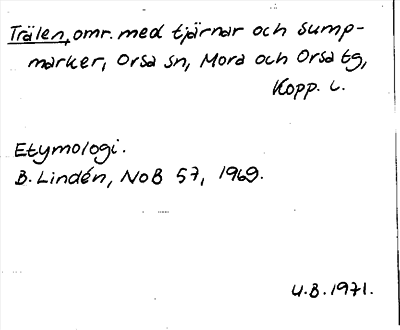 Trälen, omr. med tjärnar och sump-
marker, Orsa sn, Mora och Orsa tg,
Kopp. l.
Etymologi.
B. Lindén, NoB 57, 1969.
U.B. 1971.